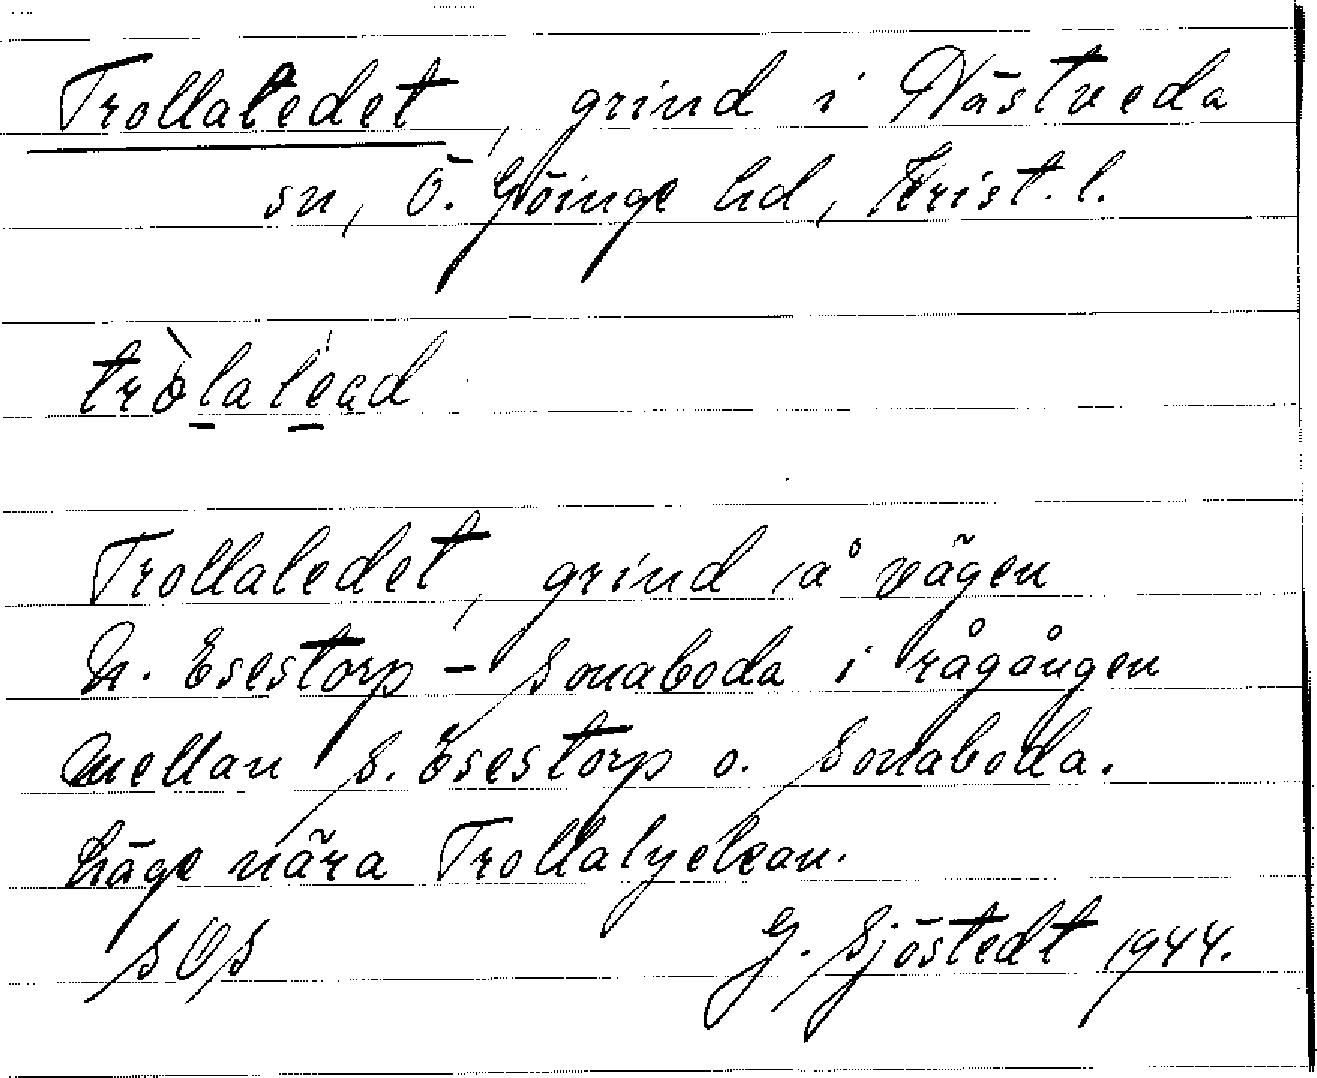 Trollaledet, grind i Västveda
sn, Ö. Göinge hd, Krist. l.
tròlalead
Trollaledet, grind å vägen
N. Esestorp - Sonaboda i rågången
mellan S. Esestorp o. Sonaboda.
Läge nära Trollalyckan.
SOS G. Sjöstedt 1944.